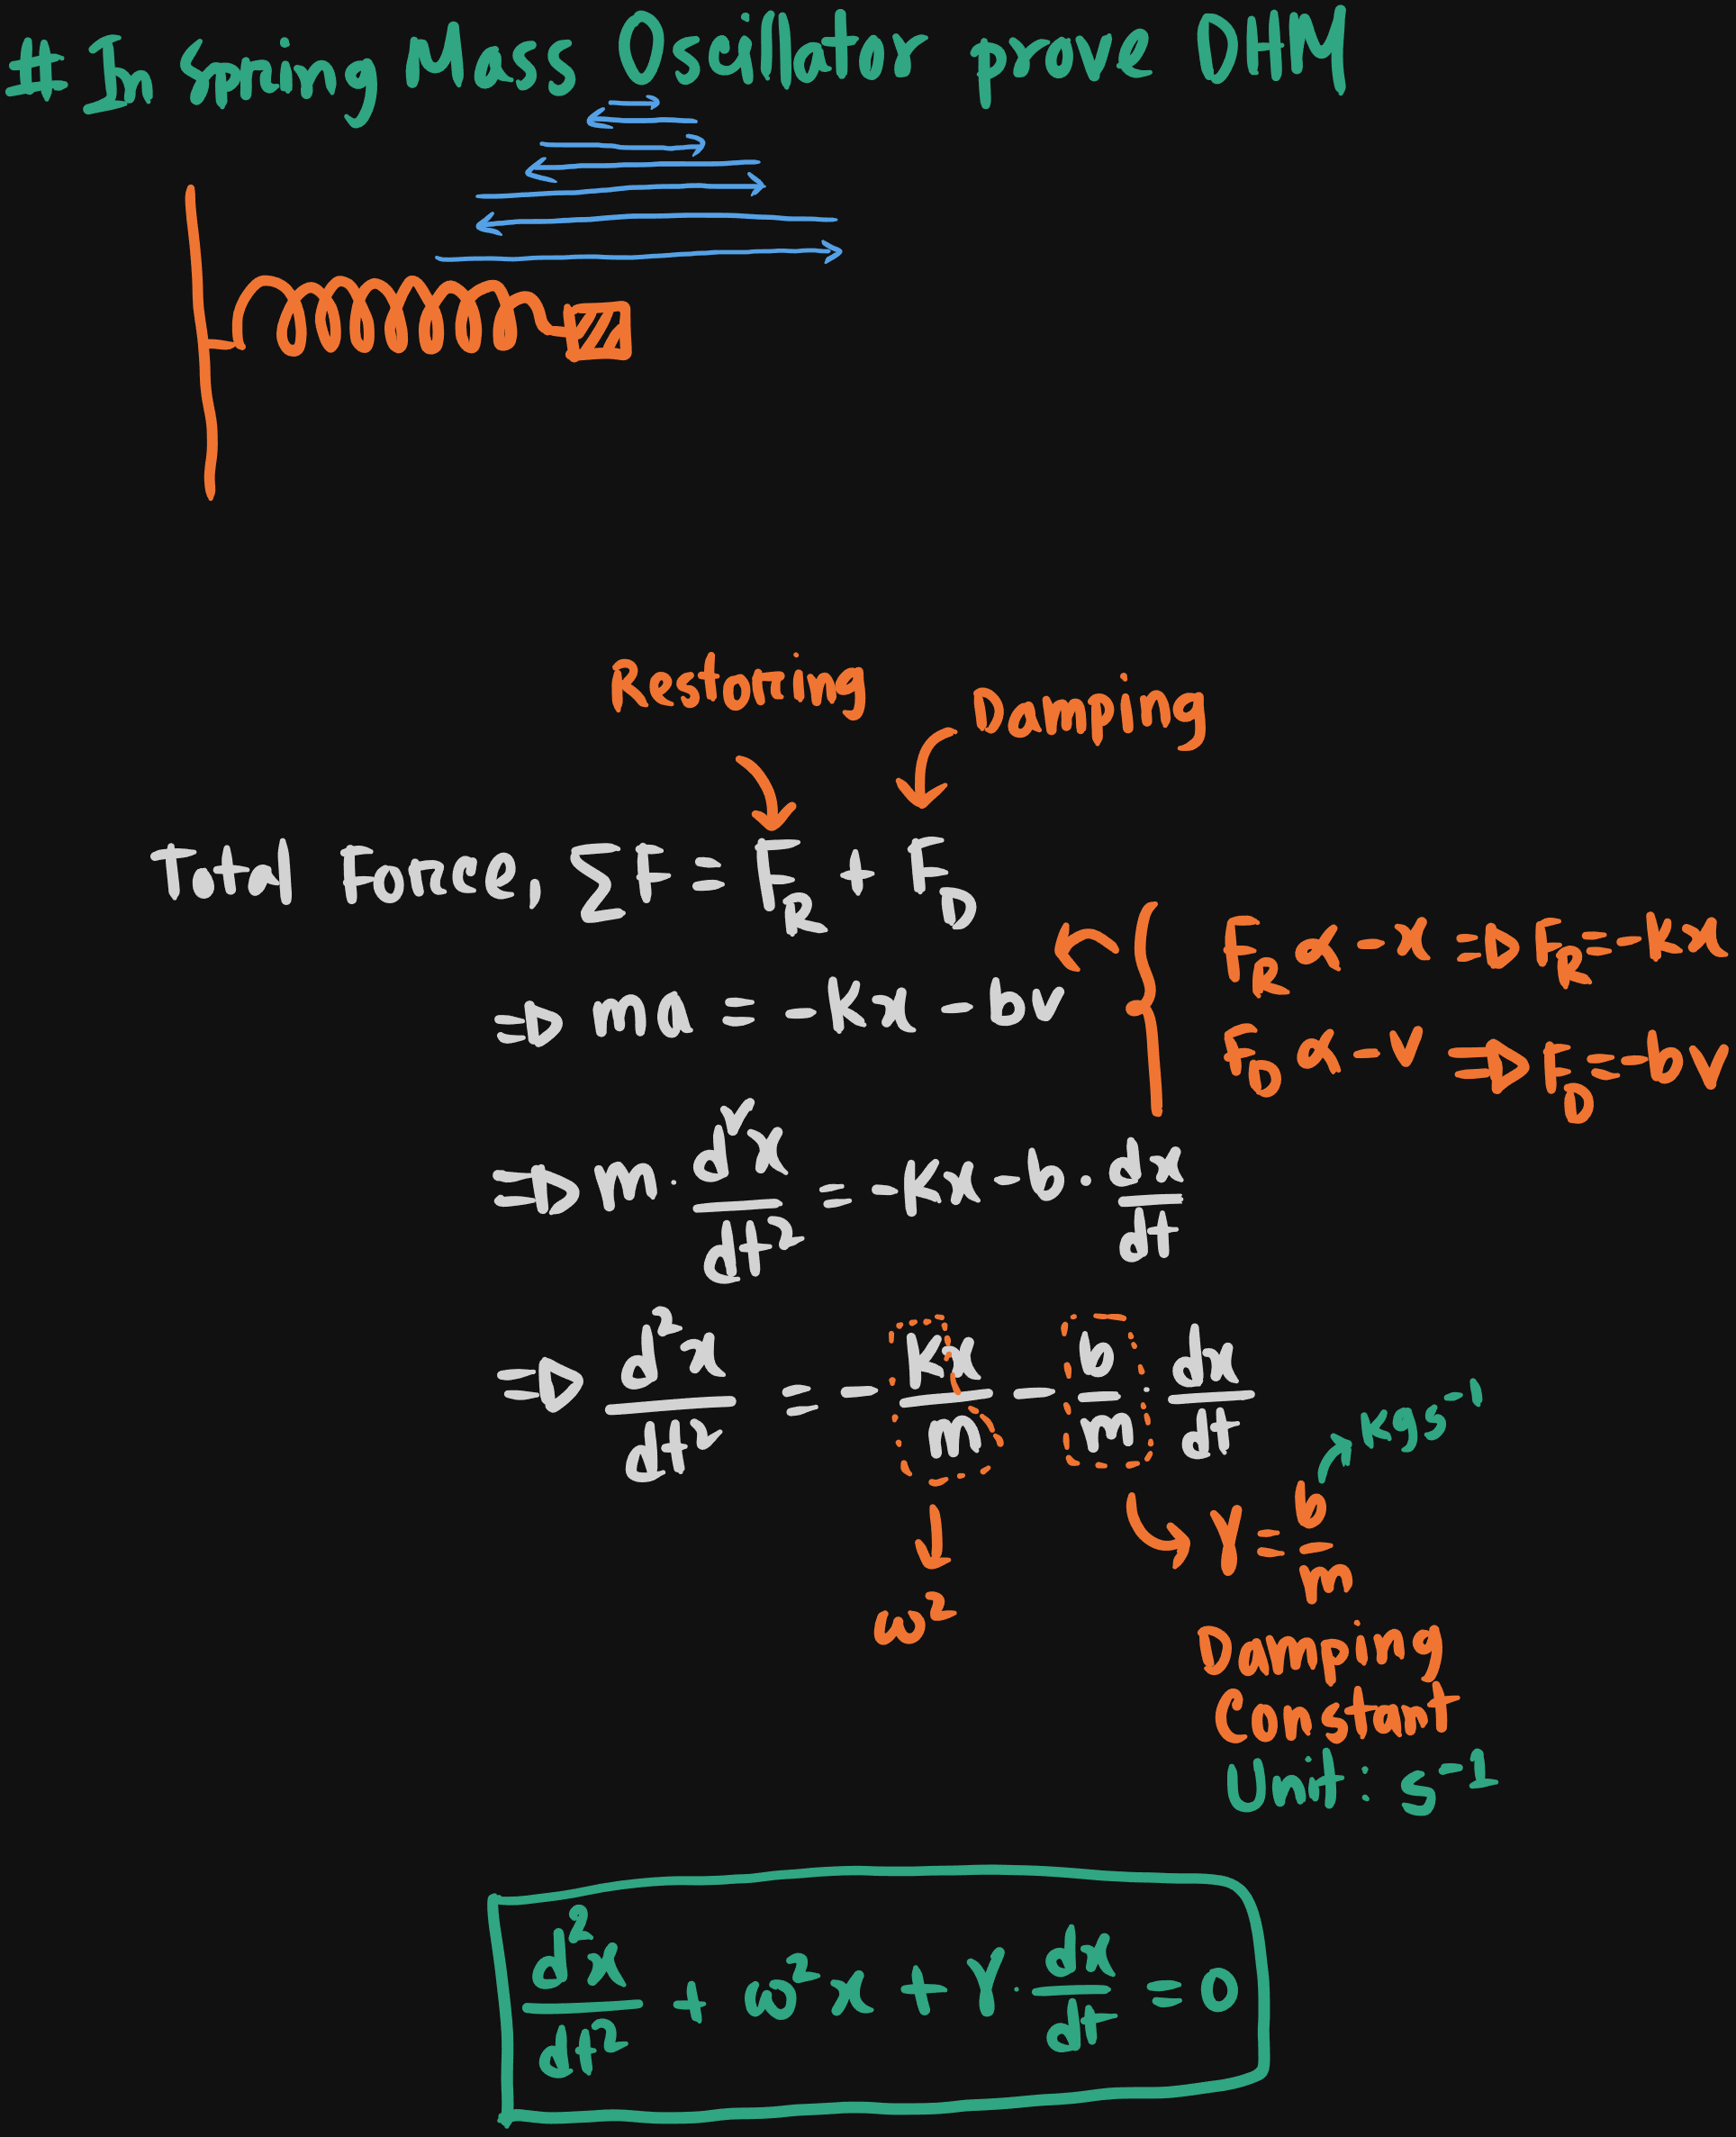 # In Spring Mass Oscillator prove DHM
Restoring
Damping
Total Force, ∑F = F_R + F_D
F_R α -x => F_R = -kx
=> ma = -kx - bv
F_D α -v => F_D = -bv
=> m · d²x/dt² = -kx - b · dx/dt
=> d²x/dt² = - kx/m - b/m · dx/dt
kgs⁻¹
γ = b/m
ω²
Damping
Constant
Unit: s⁻¹
d²x/dt² + ω²x + γ · dx/dt = 0